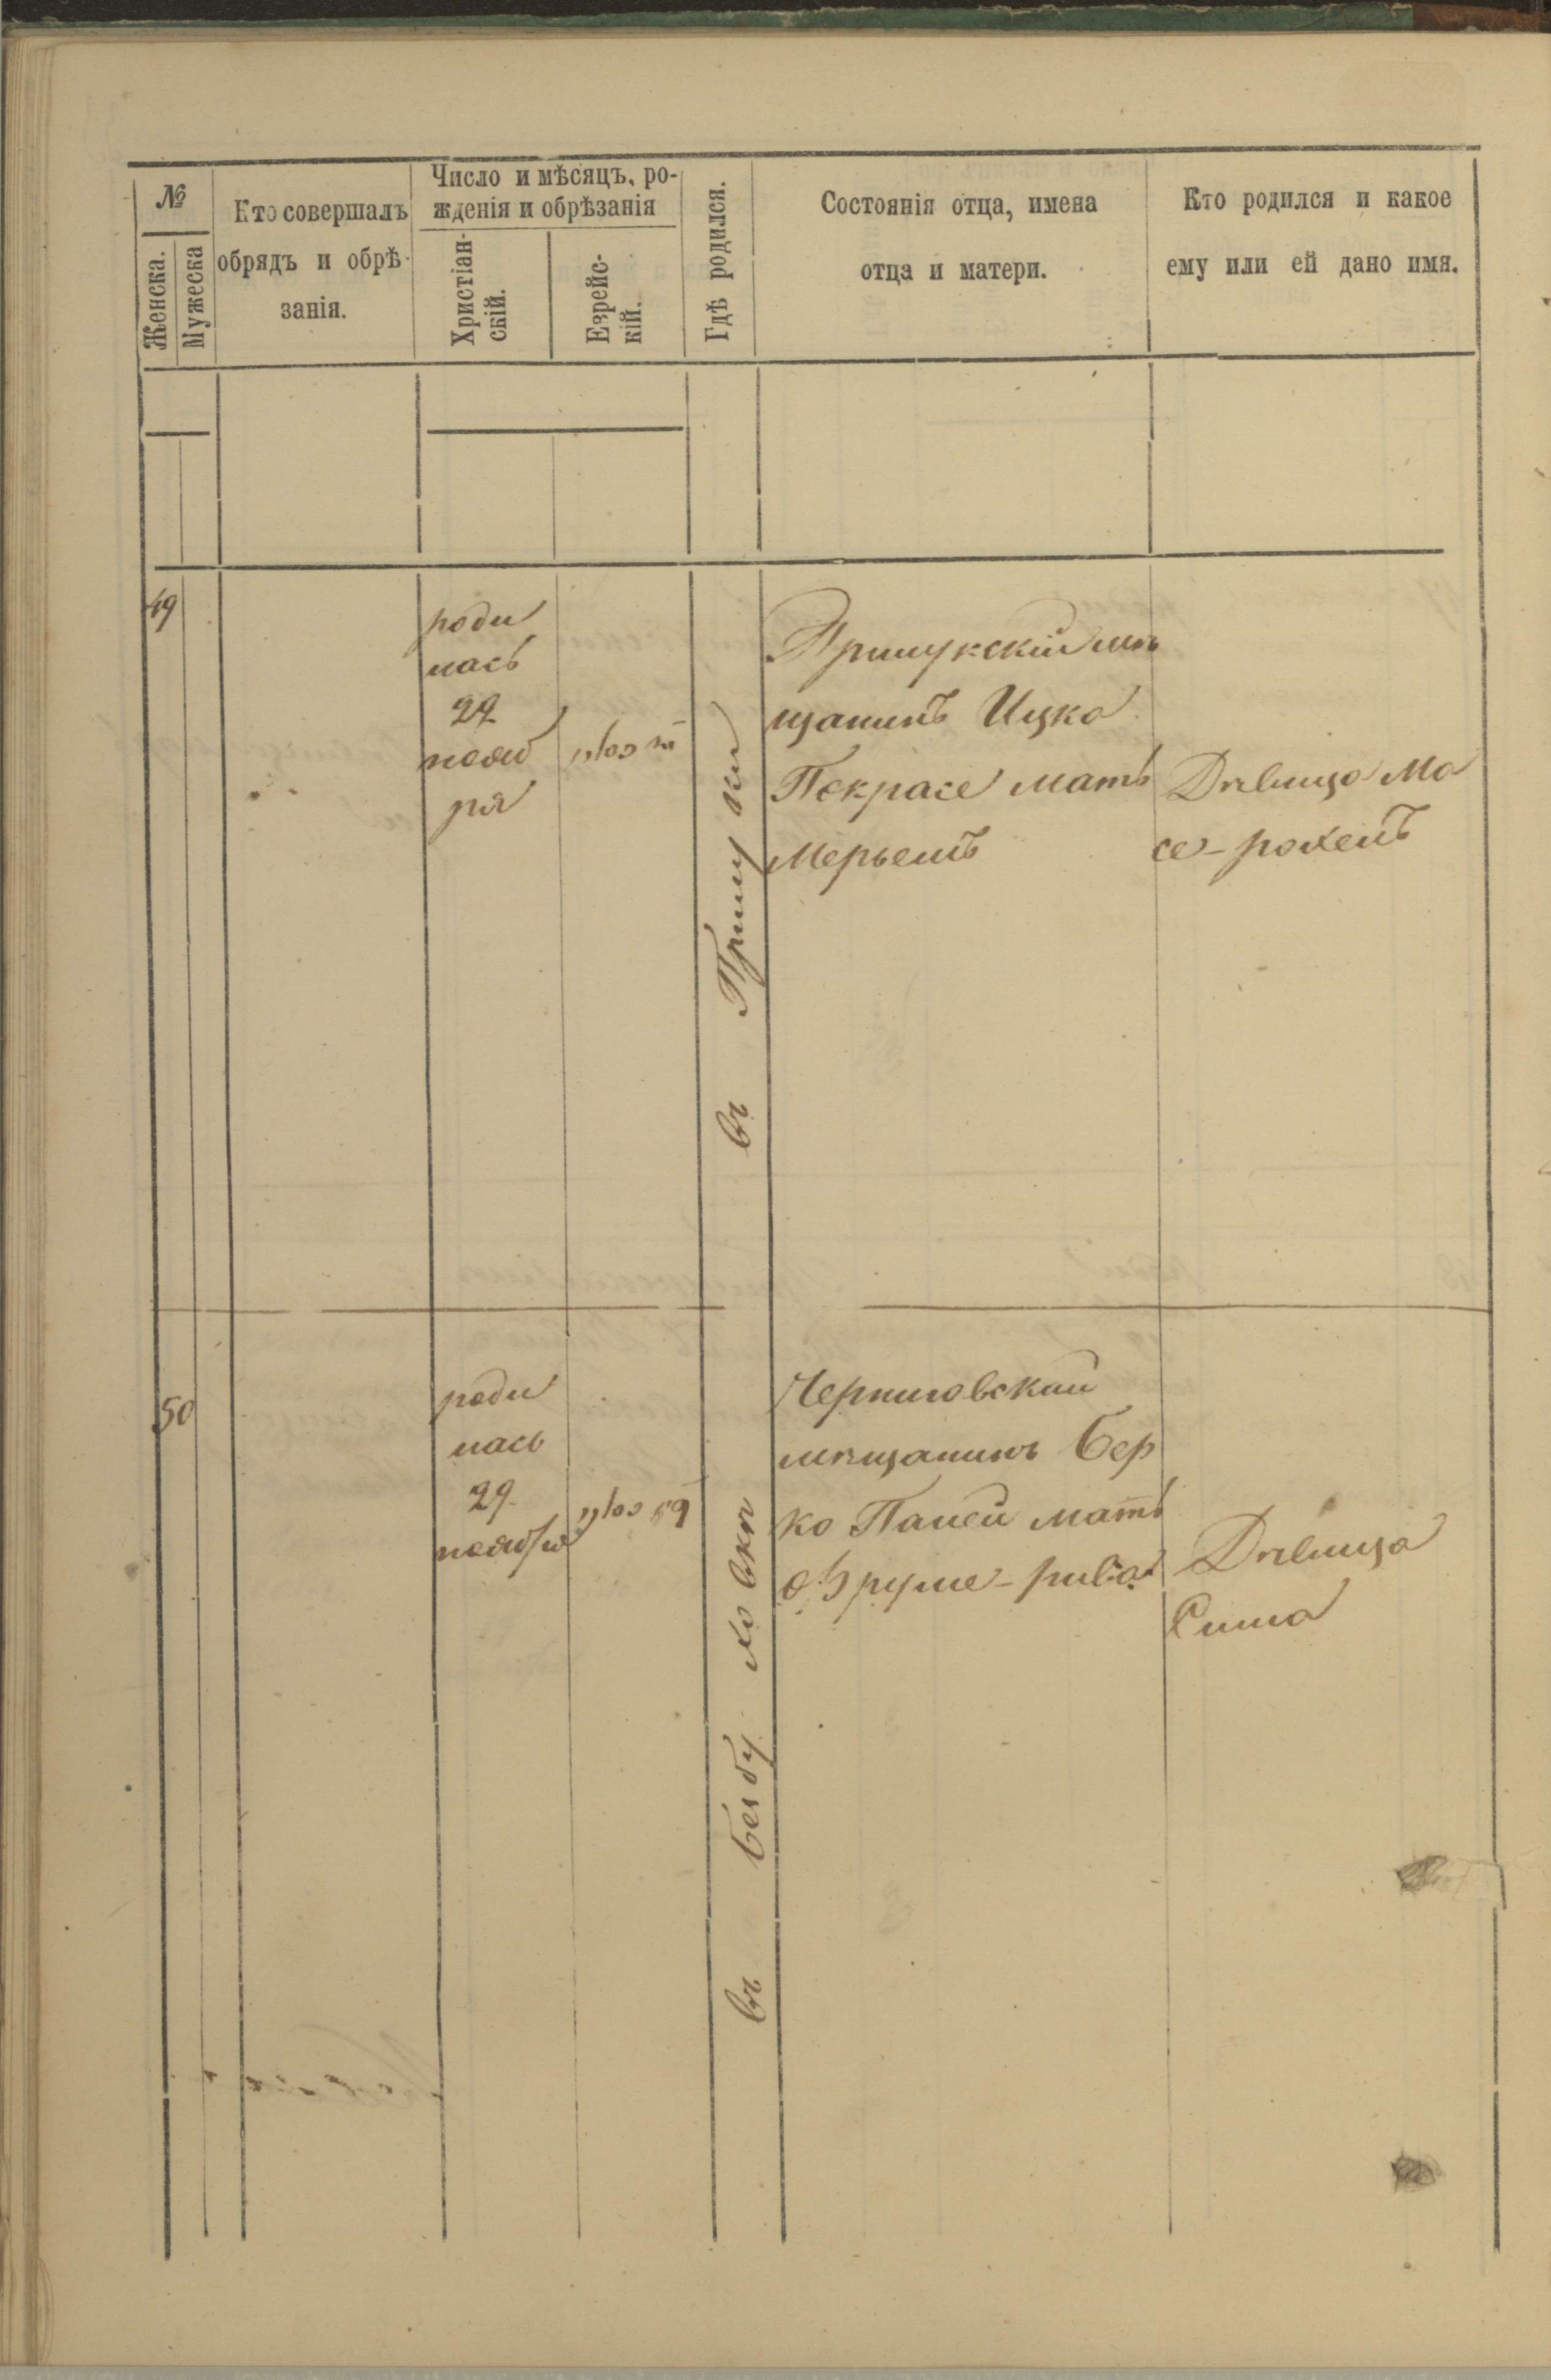 №
Женска.
Мужеска
Кто совершалъ
обрядъ и обрѣ-
занія.
Число и мѣсяцъ, ро-
жденія и обрѣзанія
Христіан-
скій.
Еврейс-
кій.
Гдѣ родился.
Состоянія отца, имена
отца и матери.
Кто родился и какое
ему или ей дано имя.
49
роди
лась
22
нояб
ря
כסלו
въ Прилуки
Прилукскій мѣ
щанинъ Ицко
Покрасе мать
Мерьемъ
Дѣвица Ма
се-рохель
50
роди
лась
29
ноября
כסלו
въ
Черниговскай
мѣщанинъ Бер
ко Паней мать
Фруме-рива
Дѣвица
Сима